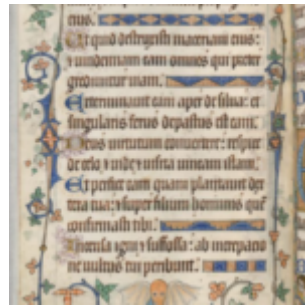 eius.
Ut quid destruxisti maceriam eius:
⁊ vindemiant eam omnes qui preter
grediuntur viam.
Exterminavit eam aper de silva: et
singularis ferus depastus est eam.
Deus virtutum convertere: respice
de celo ⁊ vide ⁊ visita vineam istam.
Et perfice eam quam plantavit dex
tera tua: ⁊ super filium hominis quem
confirmasti tibi.
Incensa igni ⁊ suffossa: ab increpatio
ne vultus tui peribunt.